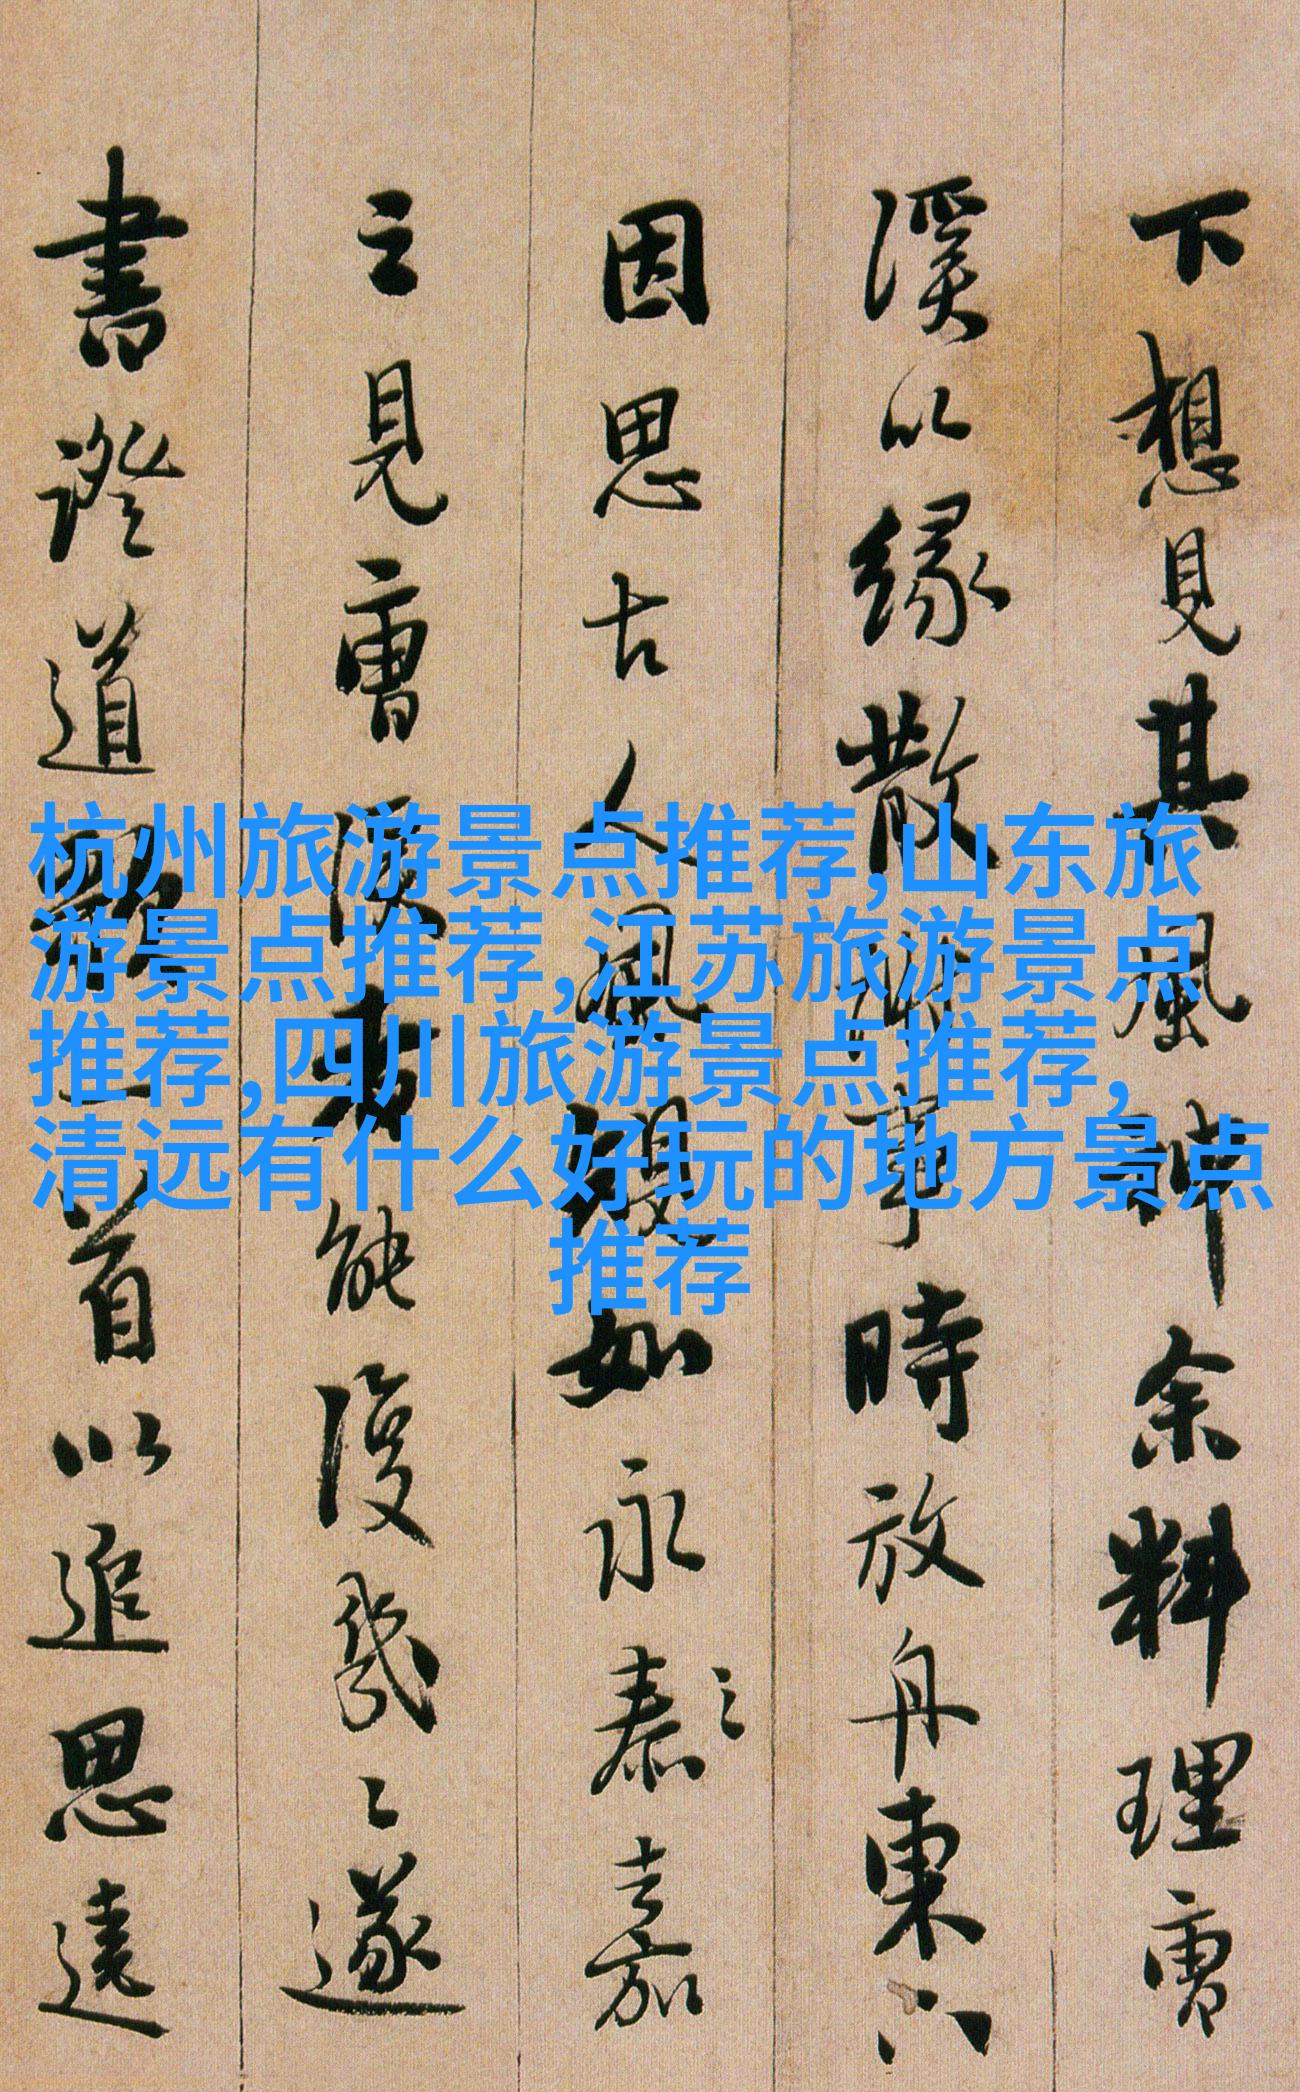 杭州旅游景点推荐,山东旅
游景点推荐,江苏旅游景点
推荐,四川旅游景点推荐,
清远有什么好玩的地方景点
推荐
下想見其風神余料理雪
溪以緣散 事時放舟東下
因思古人風 如永泰之嘉
之見雪溪 能復幾之遂
書證道歌一首以追思遠